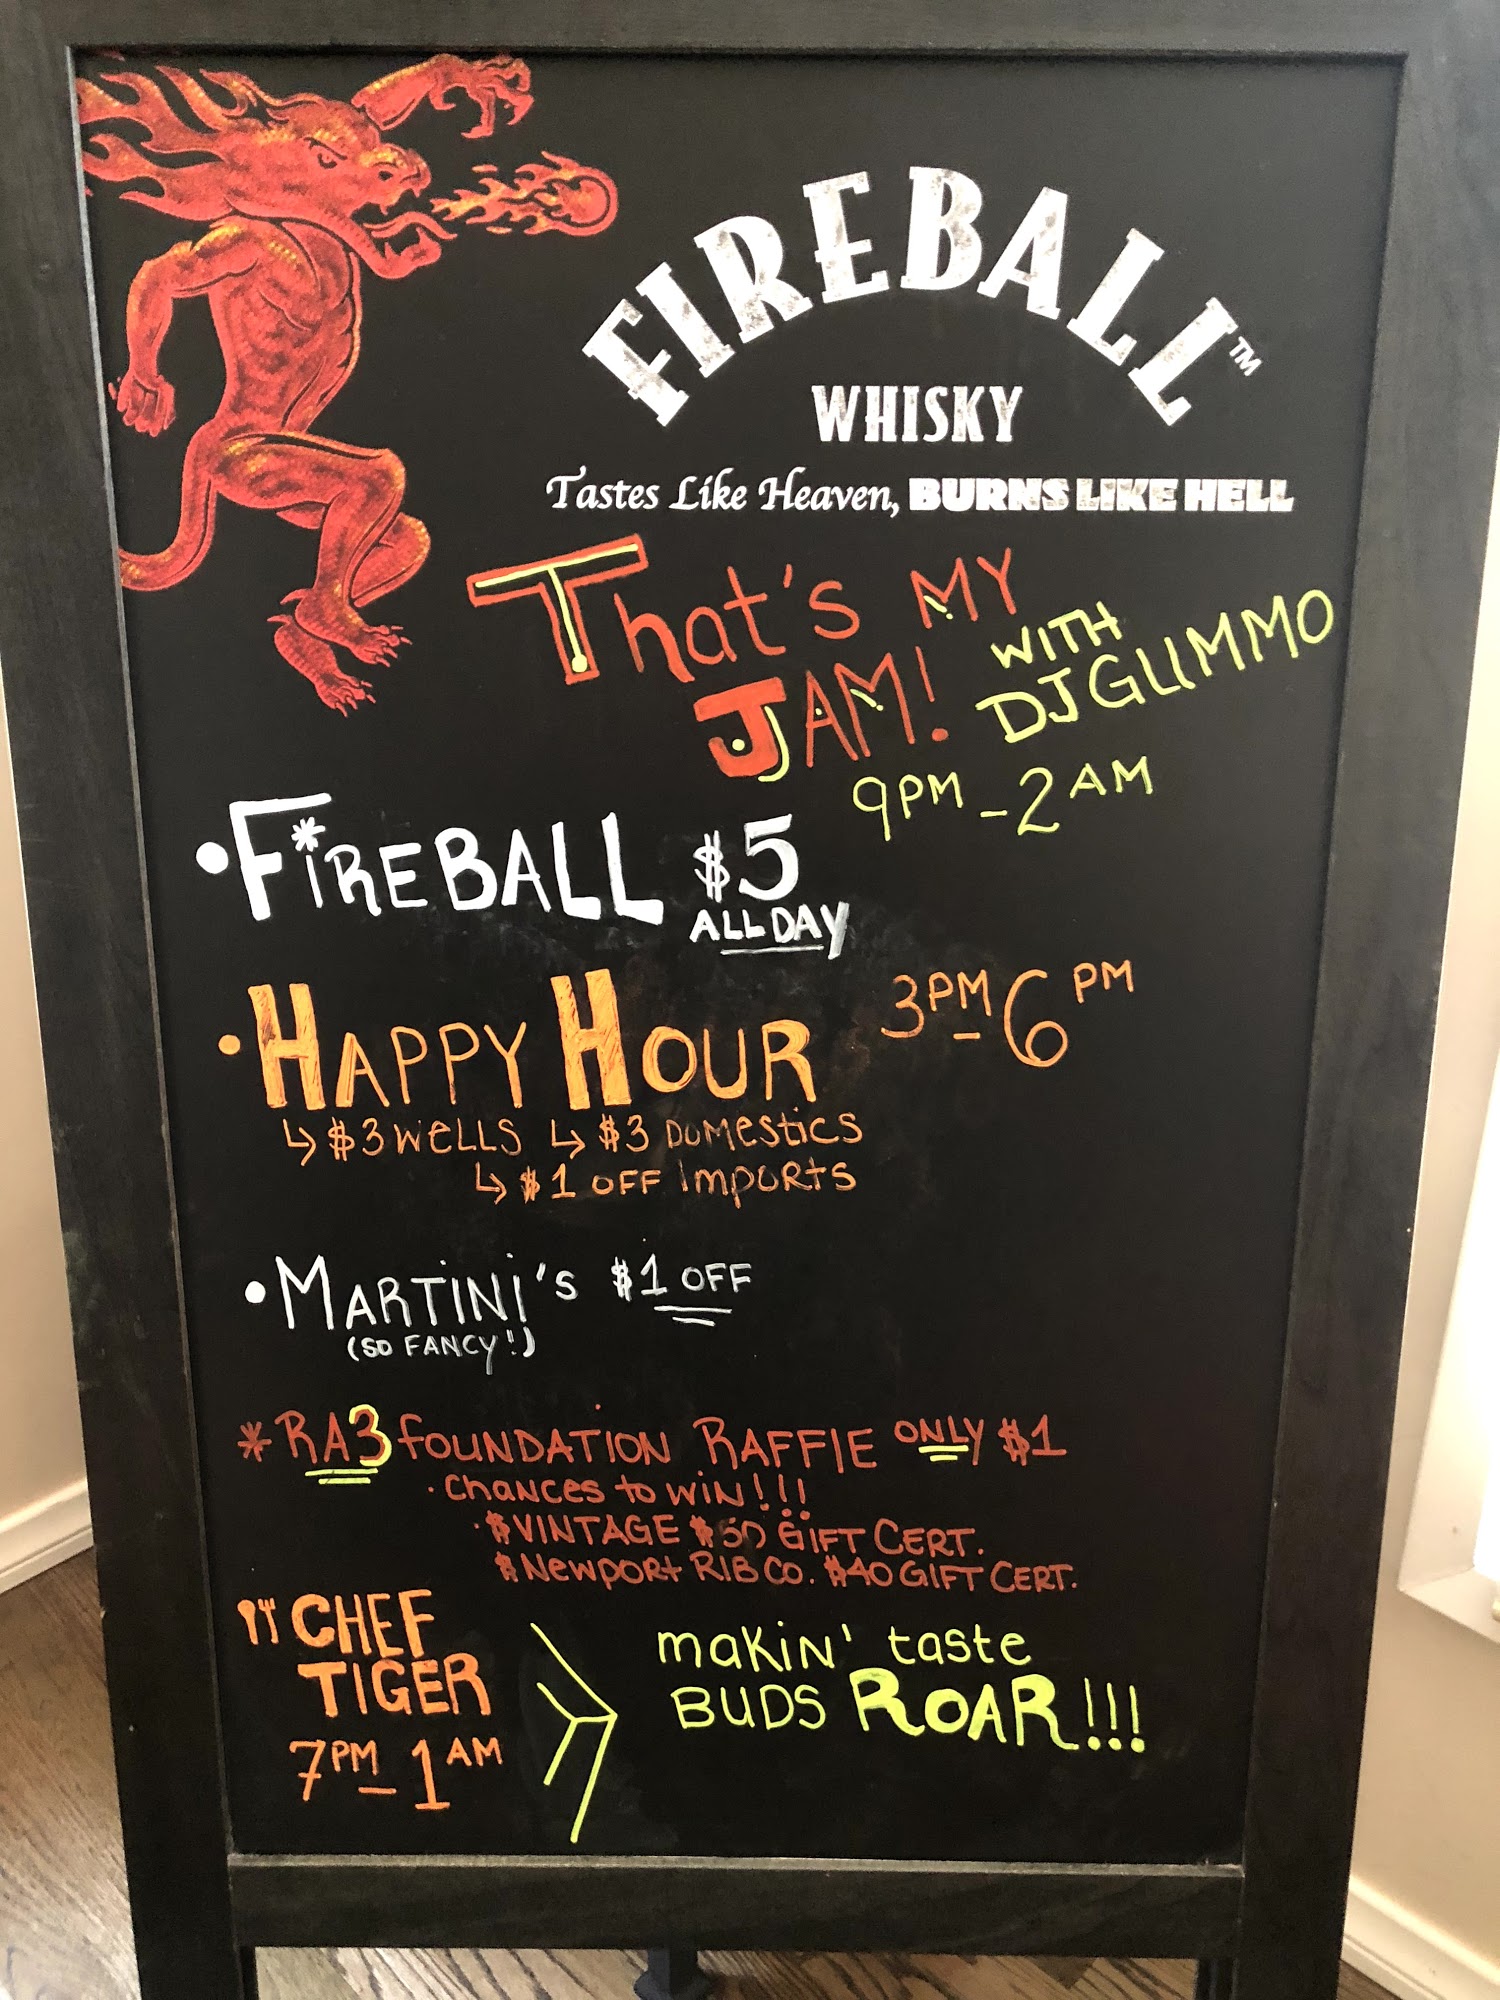 FIREBALL™
WHISKY
Tastes Like Heaven, BURNS LIKE HELL
That's MY
JAM! WITH
DJ GLIMMO
9PM - 2AM
• FIREBALL $5
ALL DAY
• HAPPY HOUR 3PM - 6PM
↳ $3 WELLS ↳ $3 DOMESTICS
↳ $1 OFF IMPORTS
• MARTINI'S $1 OFF
(SO FANCY!)
* RA3 FOUNDATION RAFFLE ONLY $1
• CHANCES TO WIN!!!
• $VINTAGE $50 GIFT CERT.
$NEWPORT RIB CO. $40 GIFT CERT.
CHEF
TIGER
7PM - 1AM
MAKIN' TASTE
BUDS ROAR!!!